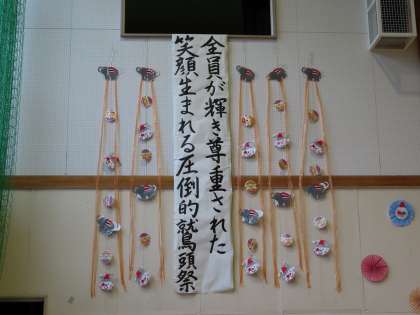 全員が輝き尊重された
笑顔生まれる圧倒的鷲頭祭